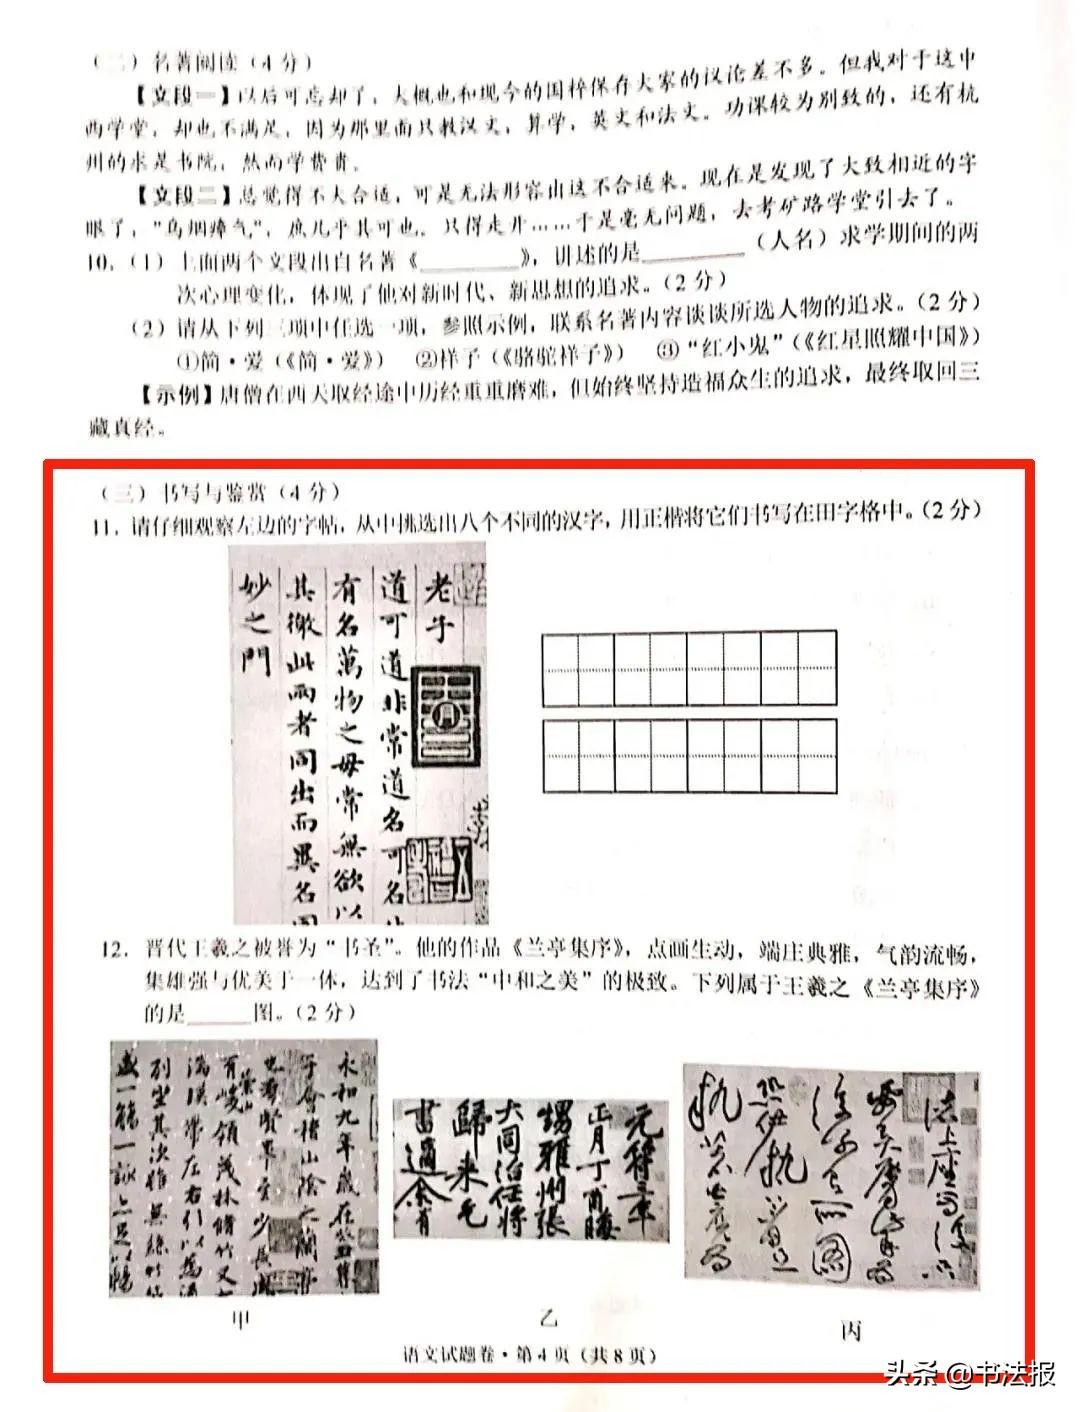 （二）名著阅读（4分）
【文段一】以后可忘却了，大概也和现今的国粹保存大家的议论差不多。但我对于这中
西学堂，却也不满足，因为那里面只教汉文，算学，英文和法文。功课较为别致的，还有杭
州的求是书院，然而学费贵。
【文段二】总觉得不大合适，可是无法形容出这不合适来。现在是发现了大致相近的字
眼了，“乌烟瘴气”，庶几乎其可也。只得走开……于是毫无问题，去考矿路学堂引去了。
10.（1）上面两个文段出自名著《________》，讲述的是________（人名）求学期间的两
次心理变化，体现了他对新时代、新思想的追求。（2分）
（2）请从下列三项中任选一项，参照示例，联系名著内容谈谈所选人物的追求。（2分）
①简·爱（《简·爱》） ②祥子（《骆驼祥子》） ③“红小鬼”（《红星照耀中国》）
【示例】唐僧在西天取经途中历经重重磨难，但始终坚持造福众生的追求，最终取回三
藏真经。
（三）书写与鉴赏（4分）
11. 请仔细观察左边的字帖，从中挑选出八个不同的汉字，用正楷将它们书写在田字格中。（2分）
老子
道可道非常道名可名
有名萬物之母常無欲以
其徼此兩者同出而異名同
妙之門
12. 晋代王羲之被誉为“书圣”。他的作品《兰亭集序》，点画生动，端庄典雅，气韵流畅，
集雄强与优美于一体，达到了书法“中和之美”的极致。下列属于王羲之《兰亭集序》
的是_____图。（2分）
永和九年歲在癸丑暮
于會稽山陰之蘭亭
羣賢畢至少長咸
有崇山峻領茂林脩竹又
湍暎帶左右引以為流
列坐其次雖無絲竹管
盛一觴一詠亦足以暢
元符三年
正月丁酉晦
甥雅州張
大同治任將
歸來乞
書適余有
甲
乙
丙
语文试题卷·第4页（共8页）
头条 @书法报